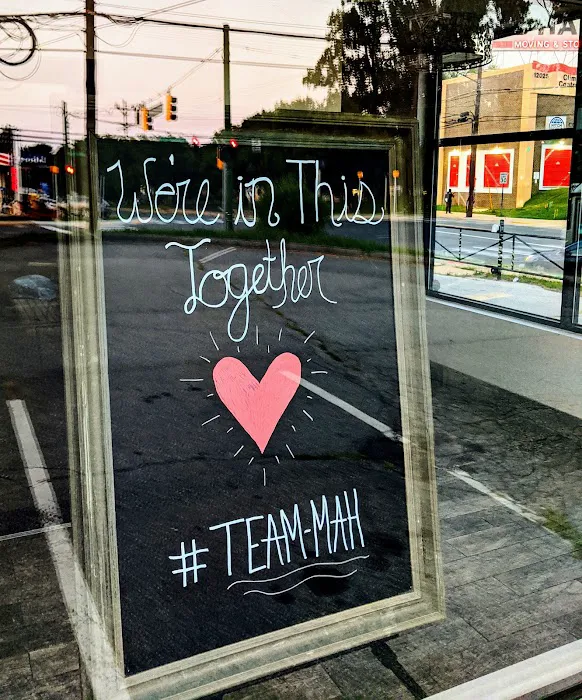 We're in This
Together
# TEAM-MAH
MOVING & STO
12021